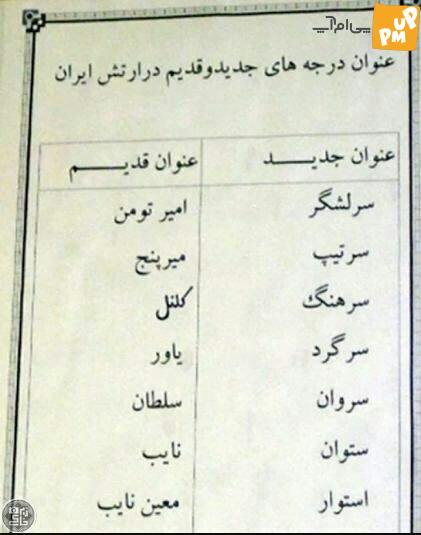 پی‌ام‌آپ
UP
PM
عنوان درجه های جدیدوقدیم درارتش ایران
عنوان جدیـــــد عنوان قدیـــــم
سرلشگر امیر تومن
سرتیپ میرپنج
سرهنگ کلنل
سرگرد یاور
سروان سلطان
ستوان نایب
استوار معین نایب